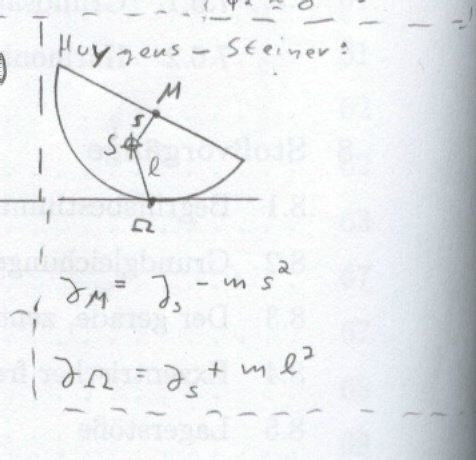 Huygens Steiner:
M
s
S
l
Ω
J_M = J_s - m s²
J_Ω = J_s + m l²
8 Stoßvorgänge
8.1 Begriffsbestimm
8.2 Grundgleichunge
8.3 Der gerade, zent
8.4 Exzentrischer fre
8.5 Lagerstöße